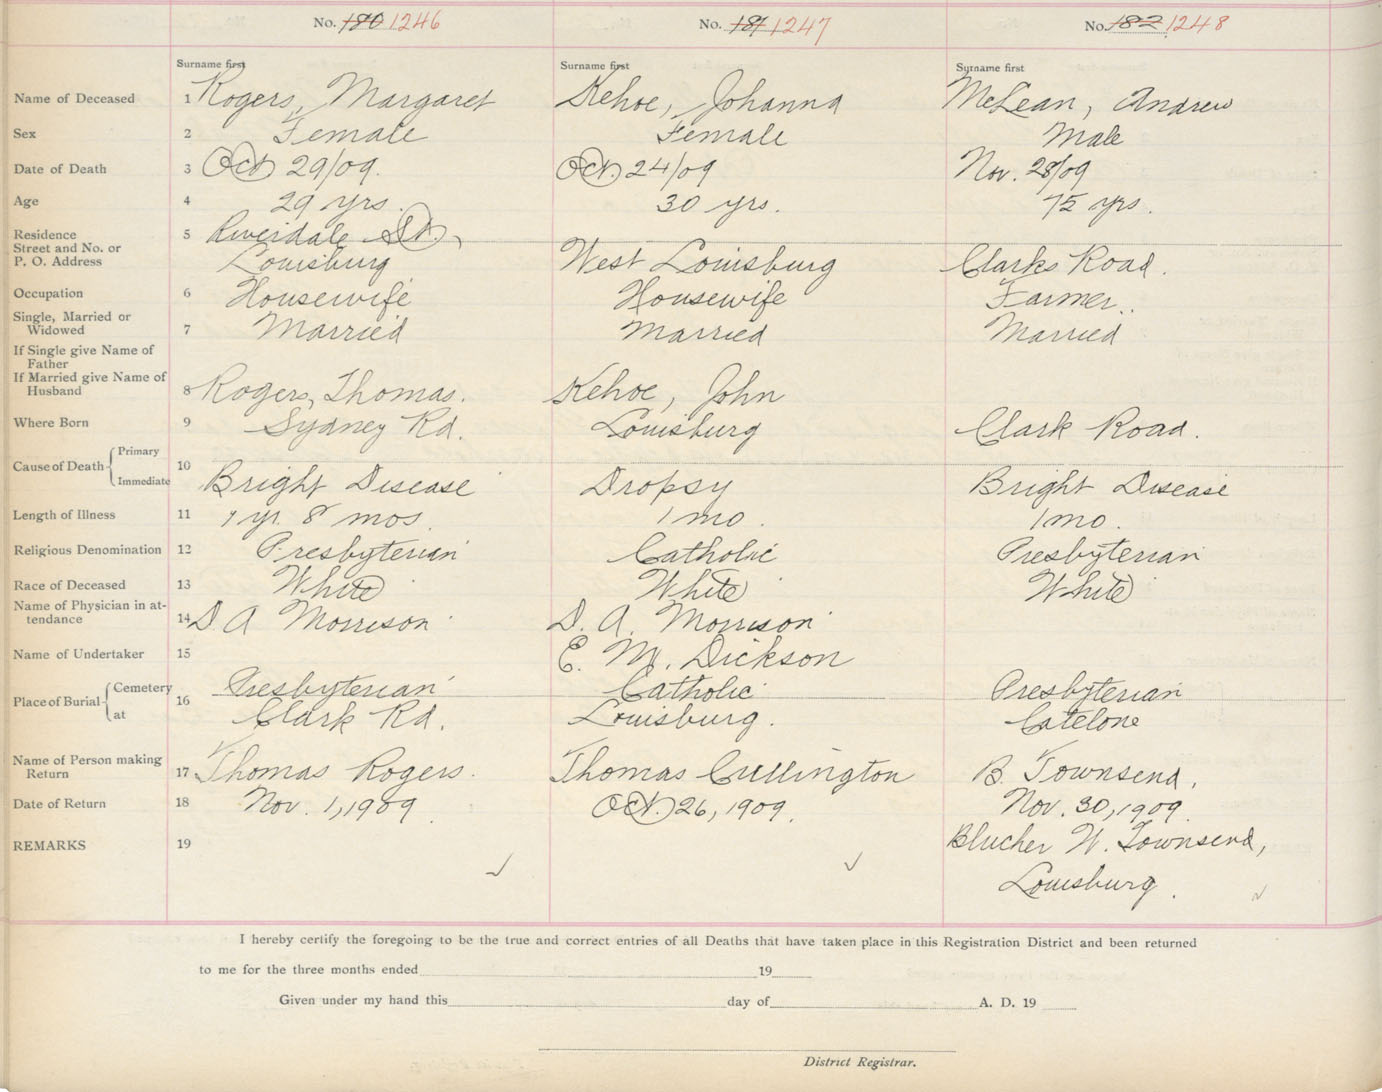 No. 180 1246 No. 181 1247 No. 182 1248
Surname first Surname first Surname first
Name of Deceased 1 Rogers, Margaret Kehoe, Johanna McLean, Andrew
Sex 2 Female Female Male
Date of Death 3 Oct 29/09. Oct. 24/09 Nov. 28/09
Age 4 29 yrs. 30 yrs. 75 yrs.
Residence 5 Riverdale St.,
Street and No. or
P. O. Address Louisburg West Louisburg Clarks Road.
Occupation 6 Housewife Housewife Farmer.
Single, Married or
Widowed 7 Married Married Married
If Single give Name of
Father
If Married give Name of
Husband 8 Rogers, Thomas. Kehoe, John
Where Born 9 Sydney Rd. Louisburg Clark Road.
Cause of Death Primary
10
Immediate Bright Disease Dropsy Bright Disease
Length of Illness 11 1 yr. 8 mos. 1 mo. 1 mo.
Religious Denomination 12 Presbyterian Catholic Presbyterian
Race of Deceased 13 White White White
Name of Physician in at-
tendance 14 D A Morrison D. A. Morrison
Name of Undertaker 15 E. M. Dickson
Place of Burial Cemetery 16 Presbyterian Catholic Presbyterian
at Clark Rd. Louisburg. Catelone
Name of Person making
Return 17 Thomas Rogers. Thomas Cullington B. Townsend.
Date of Return 18 Nov. 1, 1909 Oct. 26, 1909. Nov. 30, 1909.
REMARKS 19 Blucher W. Townsend,
Louisburg.
I hereby certify the foregoing to be the true and correct entries of all Deaths that have taken place in this Registration District and been returned
to me for the three months ended 19
Given under my hand this day of A. D. 19
District Registrar.